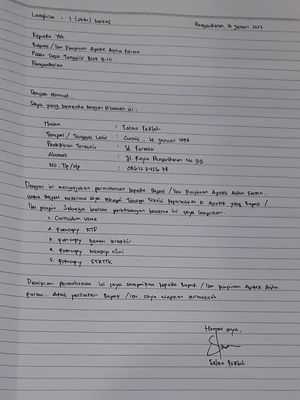 Lampiran : 1 (satu) berkas
Pangandaran, 16 Januari 2022
Kepada Yth
Bapak / Ibu Pimpinan Apotek Aisha Farma
Pasar Desa Tunggilis Blok B-10
Pangandaran
Dengan Hormat,
Saya yang bertanda tangan dibawah ini :
Nama : Salwa
Tempat / Tanggal Lahir : Ciamis, 14 Januari 1999
Pendidikan Terakhir : Farmasi
Alamat : Jl. Raya Pangandaran No
No. Tlp / Hp :
Dengan ini mengajukan permohonan kepada Bapak / Ibu Pimpinan Apotek Aisha Farma,
untuk dapat Tenaga Teknis Kefarmasian di Apotek yang Bapak /
Ibu pimpin. Sebagai bahan pertimbangan bersama ini saya lampirkan :
1. Curiculum Vitae
2. Fotocopy KTP
3. Fotocopy Ijazah terakhir
4. Fotocopy transkip nilai
5. Fotocopy STRTTK
Demikian permohonan ini saya sampaikan kepada Bapak / Ibu Pimpinan Apotek Aisha
Farma. Atas perhatian Bapak / Ibu, saya ucapkan terimakasih.
Hormat saya,
Salwa